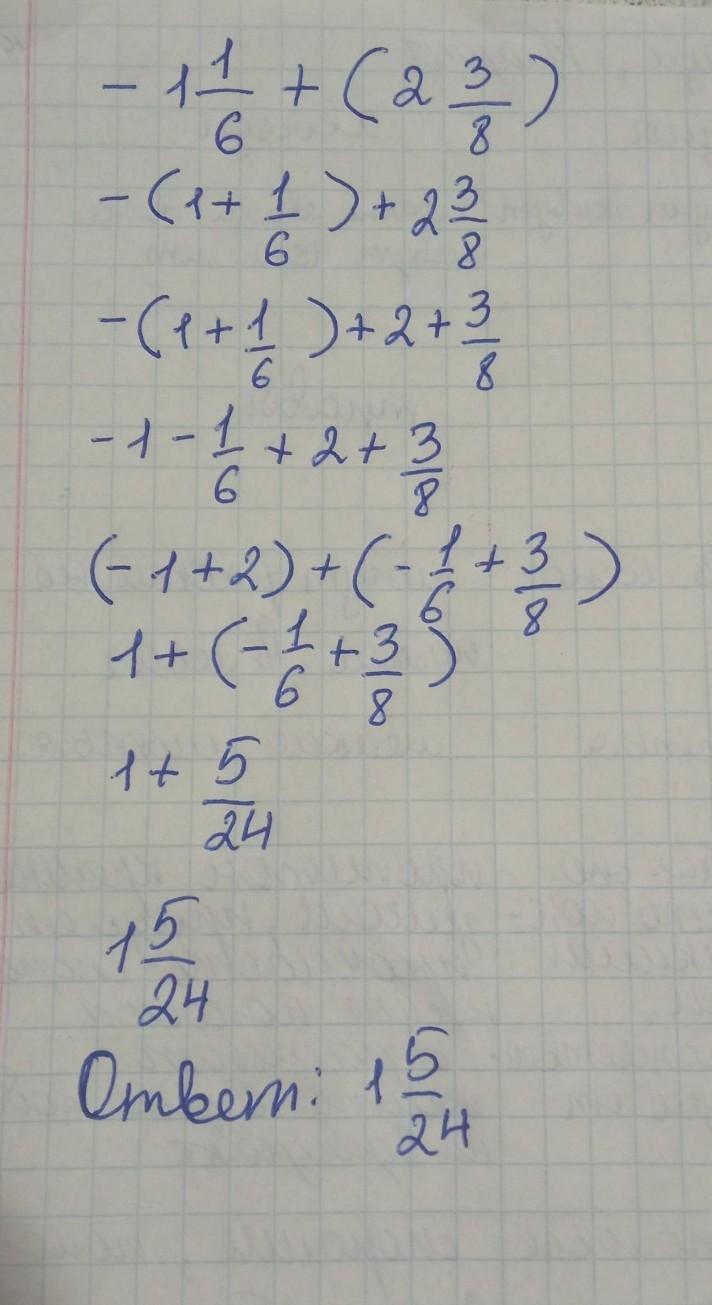 - 1 1/6 + (2 3/8)
-(1 + 1/6) + 2 3/8
-(1 + 1/6) + 2 + 3/8
-1 - 1/6 + 2 + 3/8
(-1 + 2) + (-1/6 + 3/8)
1 + (-1/6 + 3/8)
1 + 5/24
1 5/24
Ответ: 1 5/24